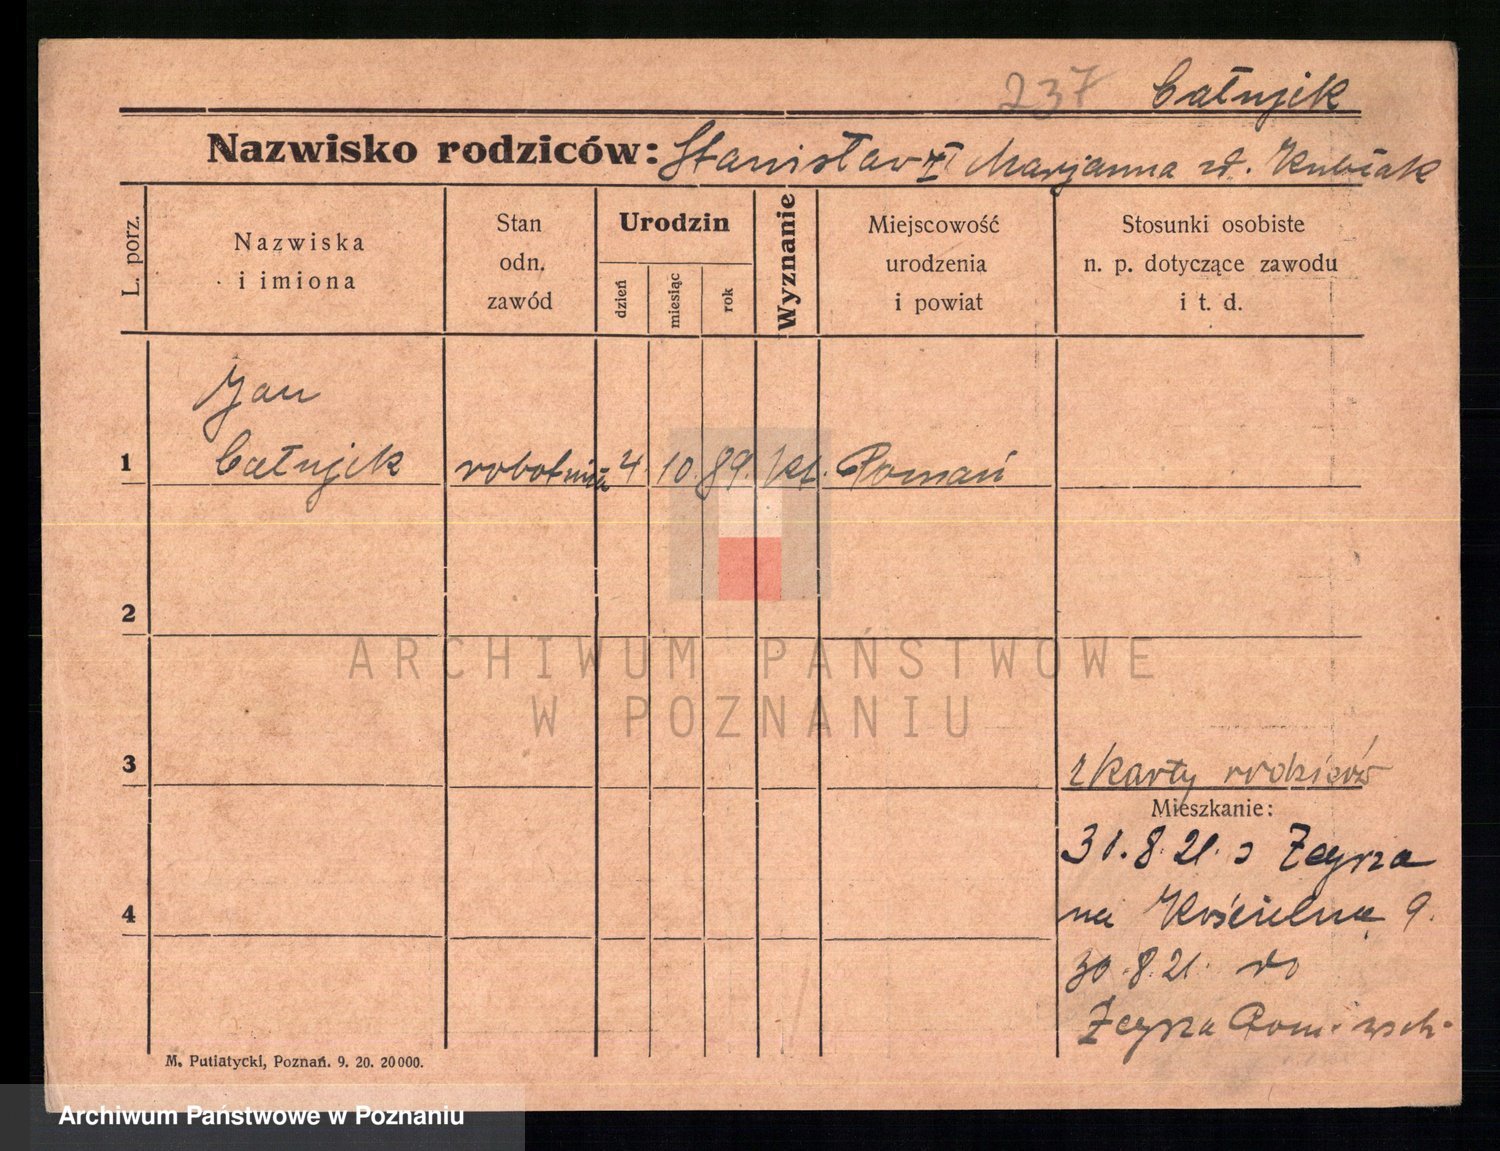 237 Całujik
Nazwisko rodziców: Stanisław i Marjanna zd. Kubiak
L. porz.
Nazwiska
i imiona
Stan
odn.
zawód
Urodzin
dzień
miesiąc
rok
Wyznanie
Miejscowość
urodzenia
i powiat
Stosunki osobiste
n. p. dotyczące zawodu
i t. d.
Jan
1 Całujik robotnik 4. 10. 89. kt. Poznań
2
ARCHIWUM PAŃSTWOWE
W POZNANIU
3
z karty rodziców
Mieszkanie:
31. 8. 21. z
na Kościelna 9.
4
30. 8. 21. do
M. Putiatycki, Poznań. 9. 20. 20000.
Archiwum Państwowe w Poznaniu